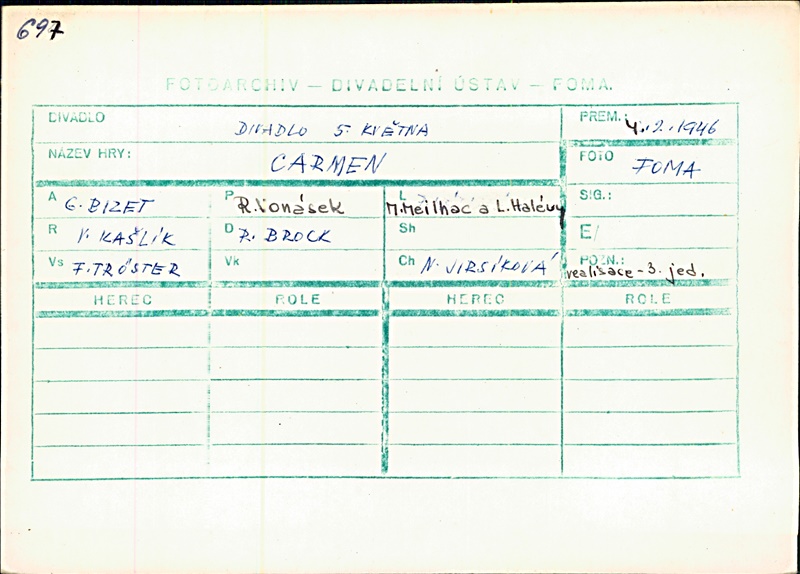 697
FOTOARCHIV — DIVADELNÍ ÚSTAV — FOMA.
DIVADLO DIVADLO 5. KVĚTNA PREM.: 4..9..1946
NÁZEV HRY: CARMEN FOTO FOMA
A G. BIZET P R.Vonásek L M.Meilhac a L.Halévy SIG.:
R V. KAŠLÍK D R. BROCK Sh E/
Vs F. TRÖSTER Vk Ch N. JIRSÍKOVÁ POZN.: realisace-3. jed.
HEREC ROLE HEREC ROLE